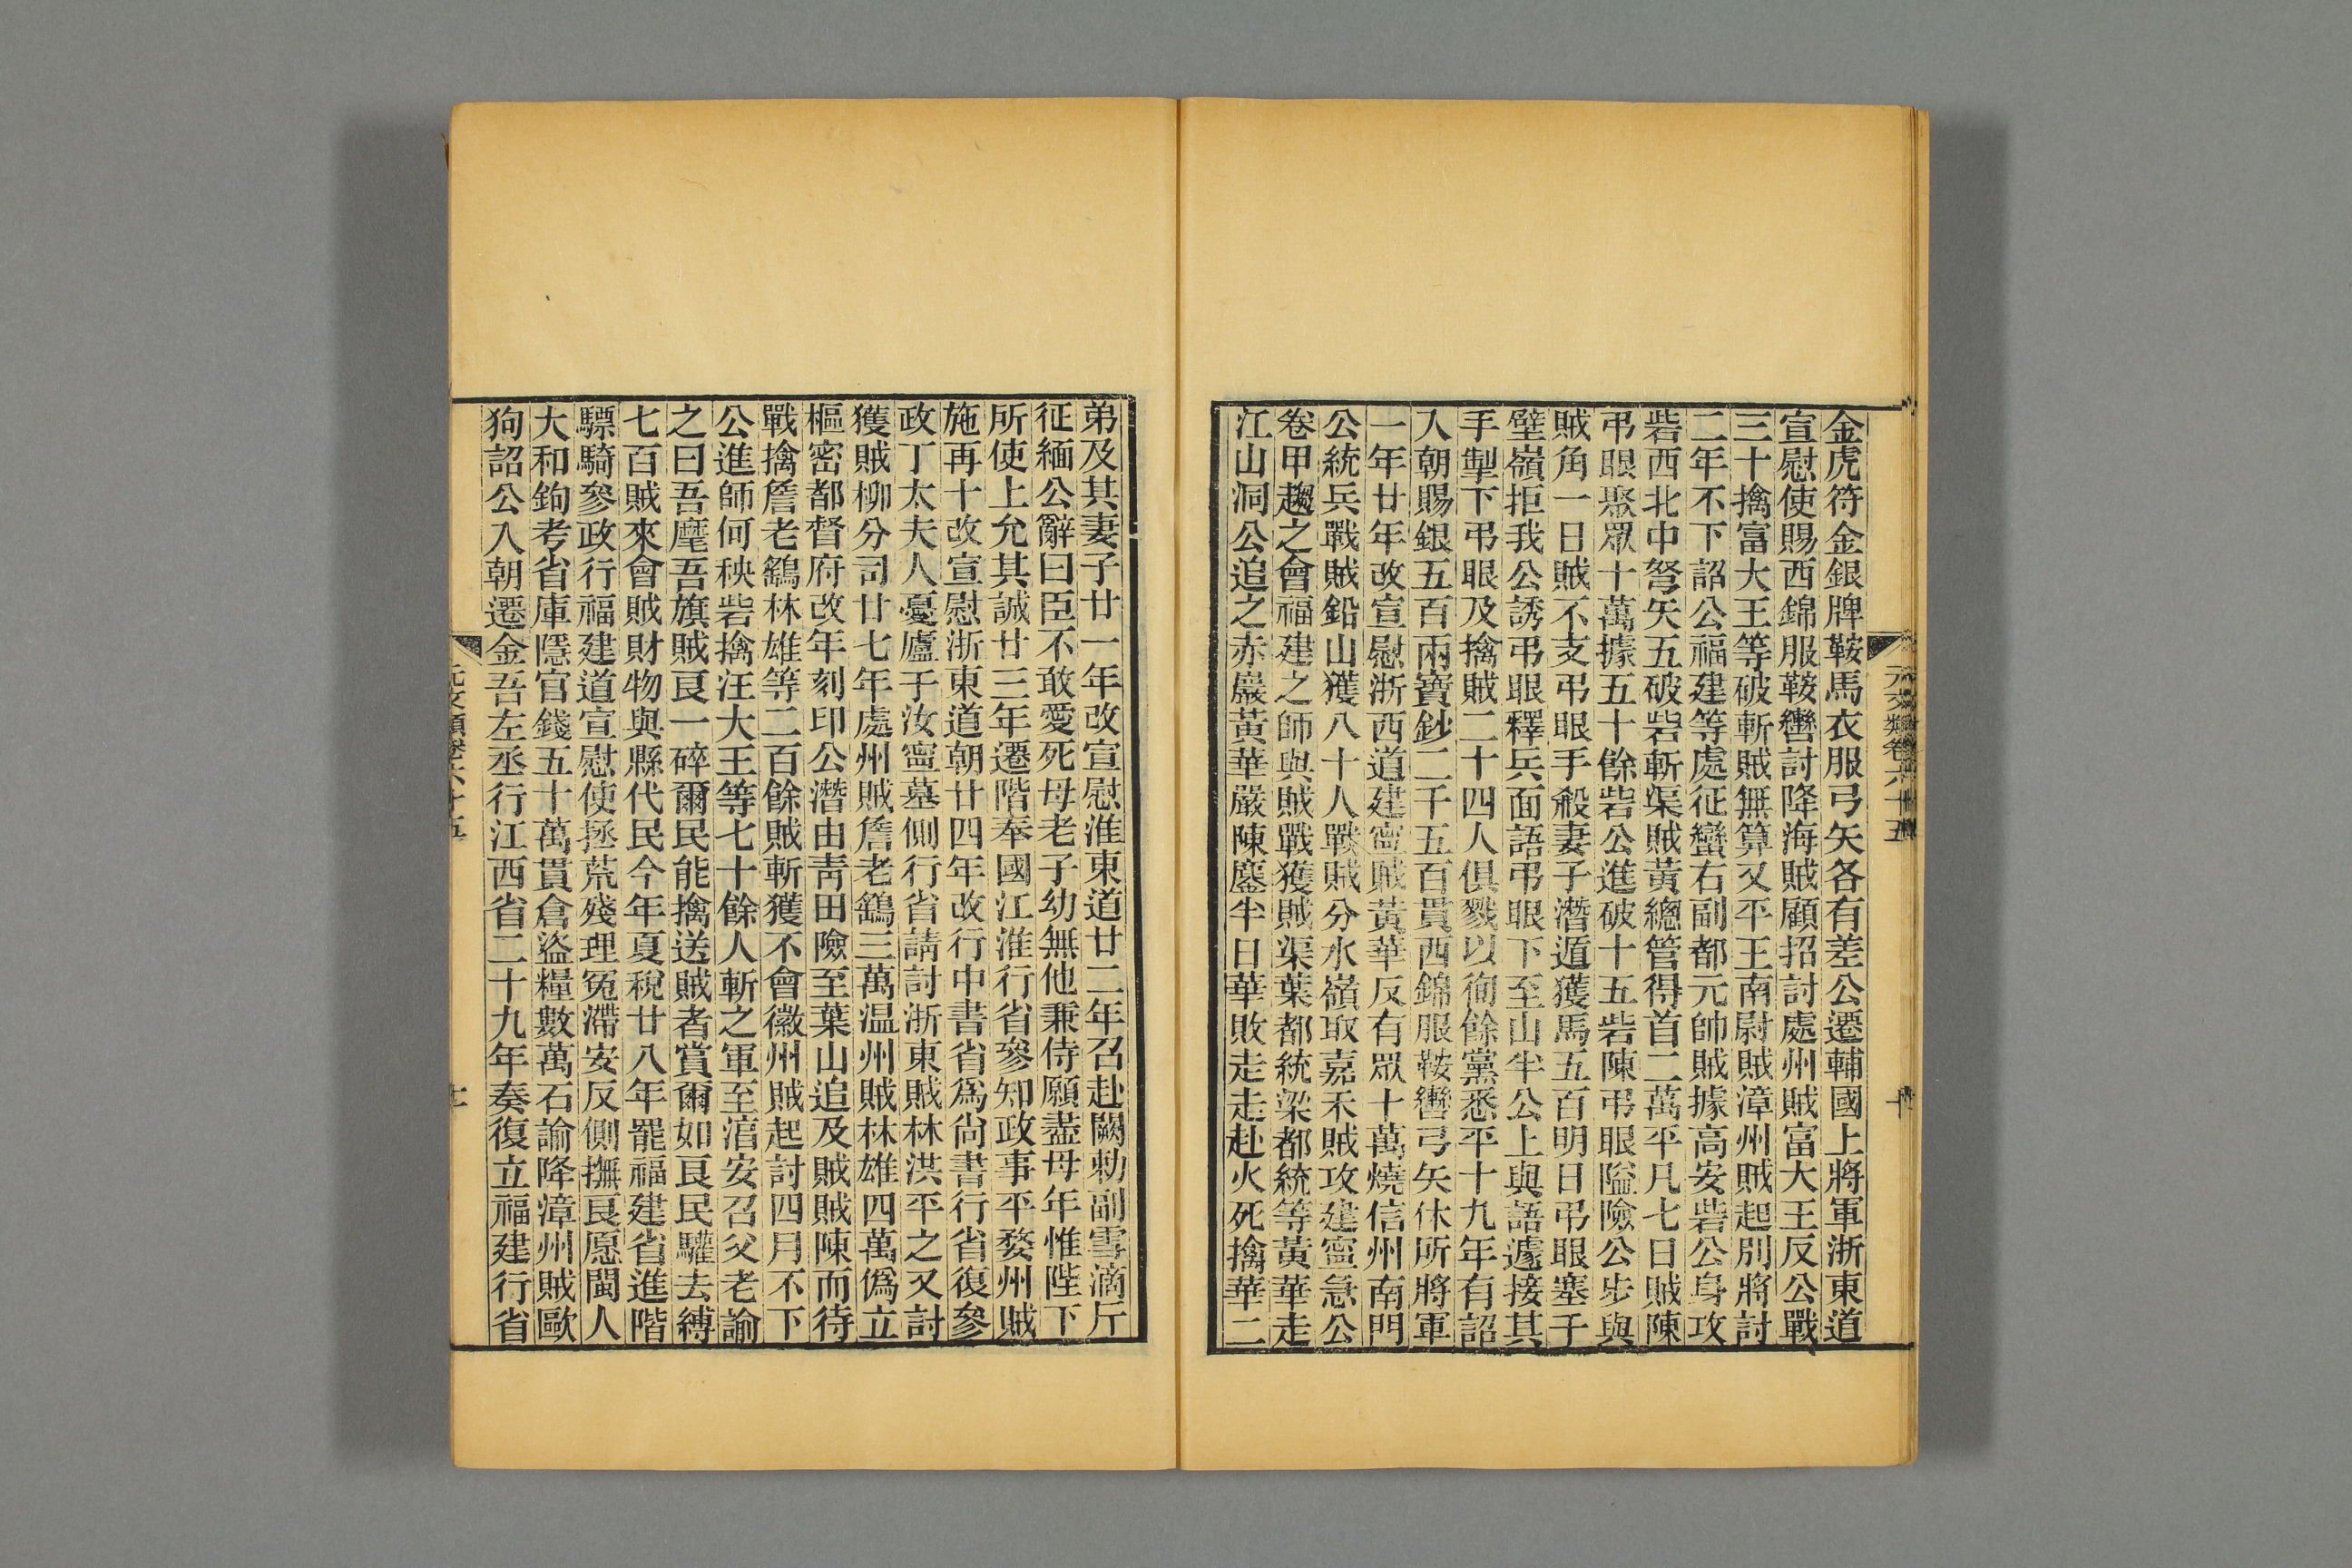 金虎符金銀牌鞍馬衣服弓矢各有差公遷輔國上將軍浙東道
宣慰使賜西錦服鞍轡討降海賊顧招討處州賊富大王反公戰
三十擒富大王等破斬賊無算又平王南尉賊漳州賊起別將討
二年不下詔公福建等處征蠻右副都元帥賊據高安砦公身攻
砦西北中弩矢五破砦斬渠賊黃總管得首二萬平凡七日賊陳
弔眼聚眾十萬據五十餘砦公進破十五砦陳弔眼隘險公步與
賊角一日賊不支弔眼手殺妻子潛遁獲馬五百明日弔眼塞子
壁嶺拒我公誘弔眼釋兵面語弔眼下至山半公上與語遽接其
手掣下弔眼及擒賊二十四人俱戮以徇餘黨悉平十九年有詔
入朝賜銀五百兩寶鈔二千五百貫西錦服鞍轡弓矢休所將軍
一年廿年改宣慰浙西道建寧賊黃華反有眾十萬燒信州南門
公統兵戰賊鉛山獲八十人戰賊分水嶺取嘉禾賊攻建寧急公
卷甲趨之會福建之師與賊戰獲賊渠葉都統梁都統等黃華走
江山洞公追之赤巖黃華嚴陳鏖半日華敗走走赴火死擒華二
元文類卷六十五
十
弟及其妻子廿一年改宣慰淮東道廿二年召赴闕勅副雪滴斤
征緬公辭曰臣不敢愛死母老子幼無他兼侍願盡母年惟陛下
所使上允其誠廿三年遷階奉國江淮行省參知政事平婺州賊
施再十改宣慰浙東道朝廿四年改行中書省爲尙書行省復參
政丁太夫人憂廬于汝寧墓側行省請討浙東賊林洪平之又討
獲賊柳分司廿七年處州賊詹老鷂三萬温州賊林雄四萬僞立
樞密都督府改年刻印公潛由靑田險至葉山追及賊賊陳而待
戰擒詹老鷂林雄等二百餘賊斬獲不會徽州賊起討四月不下
公進師何秧砦擒汪大王等七十餘人斬之軍至涫安召父老諭
之曰吾麾吾旗賊㫐一碎爾民能擒送賊者賞爾如㫐民驩去縛
七百賊來會賊財物與縣代民今年夏稅廿八年罷福建省進階
驃騎參政行福建道宣慰使拯荒殘理冤滯安反側撫㫐愿閩人
大和鉤考省庫隱官錢五十萬貫倉盜糧數萬石諭降漳州賊歐
狗詔公入朝遷金吾左丞行江西省二十九年奏復立福建行省
元文類卷六十五
十一